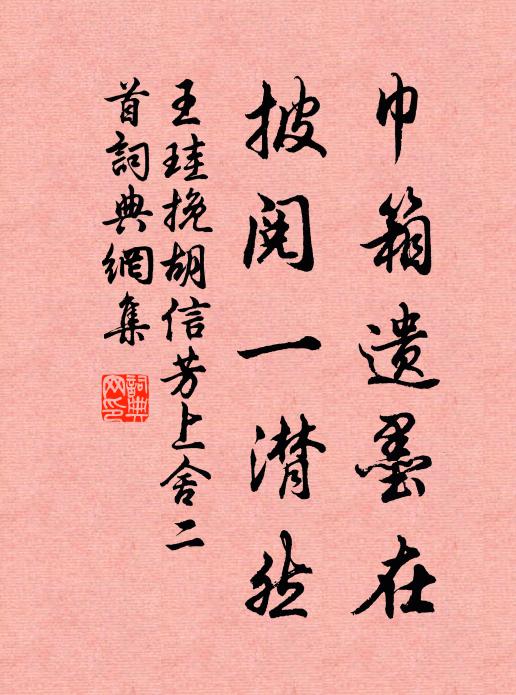 巾箱遺墨在
披閱一潸然
王珪挽胡信芳上舍二
首詞典網集
詞典
网印